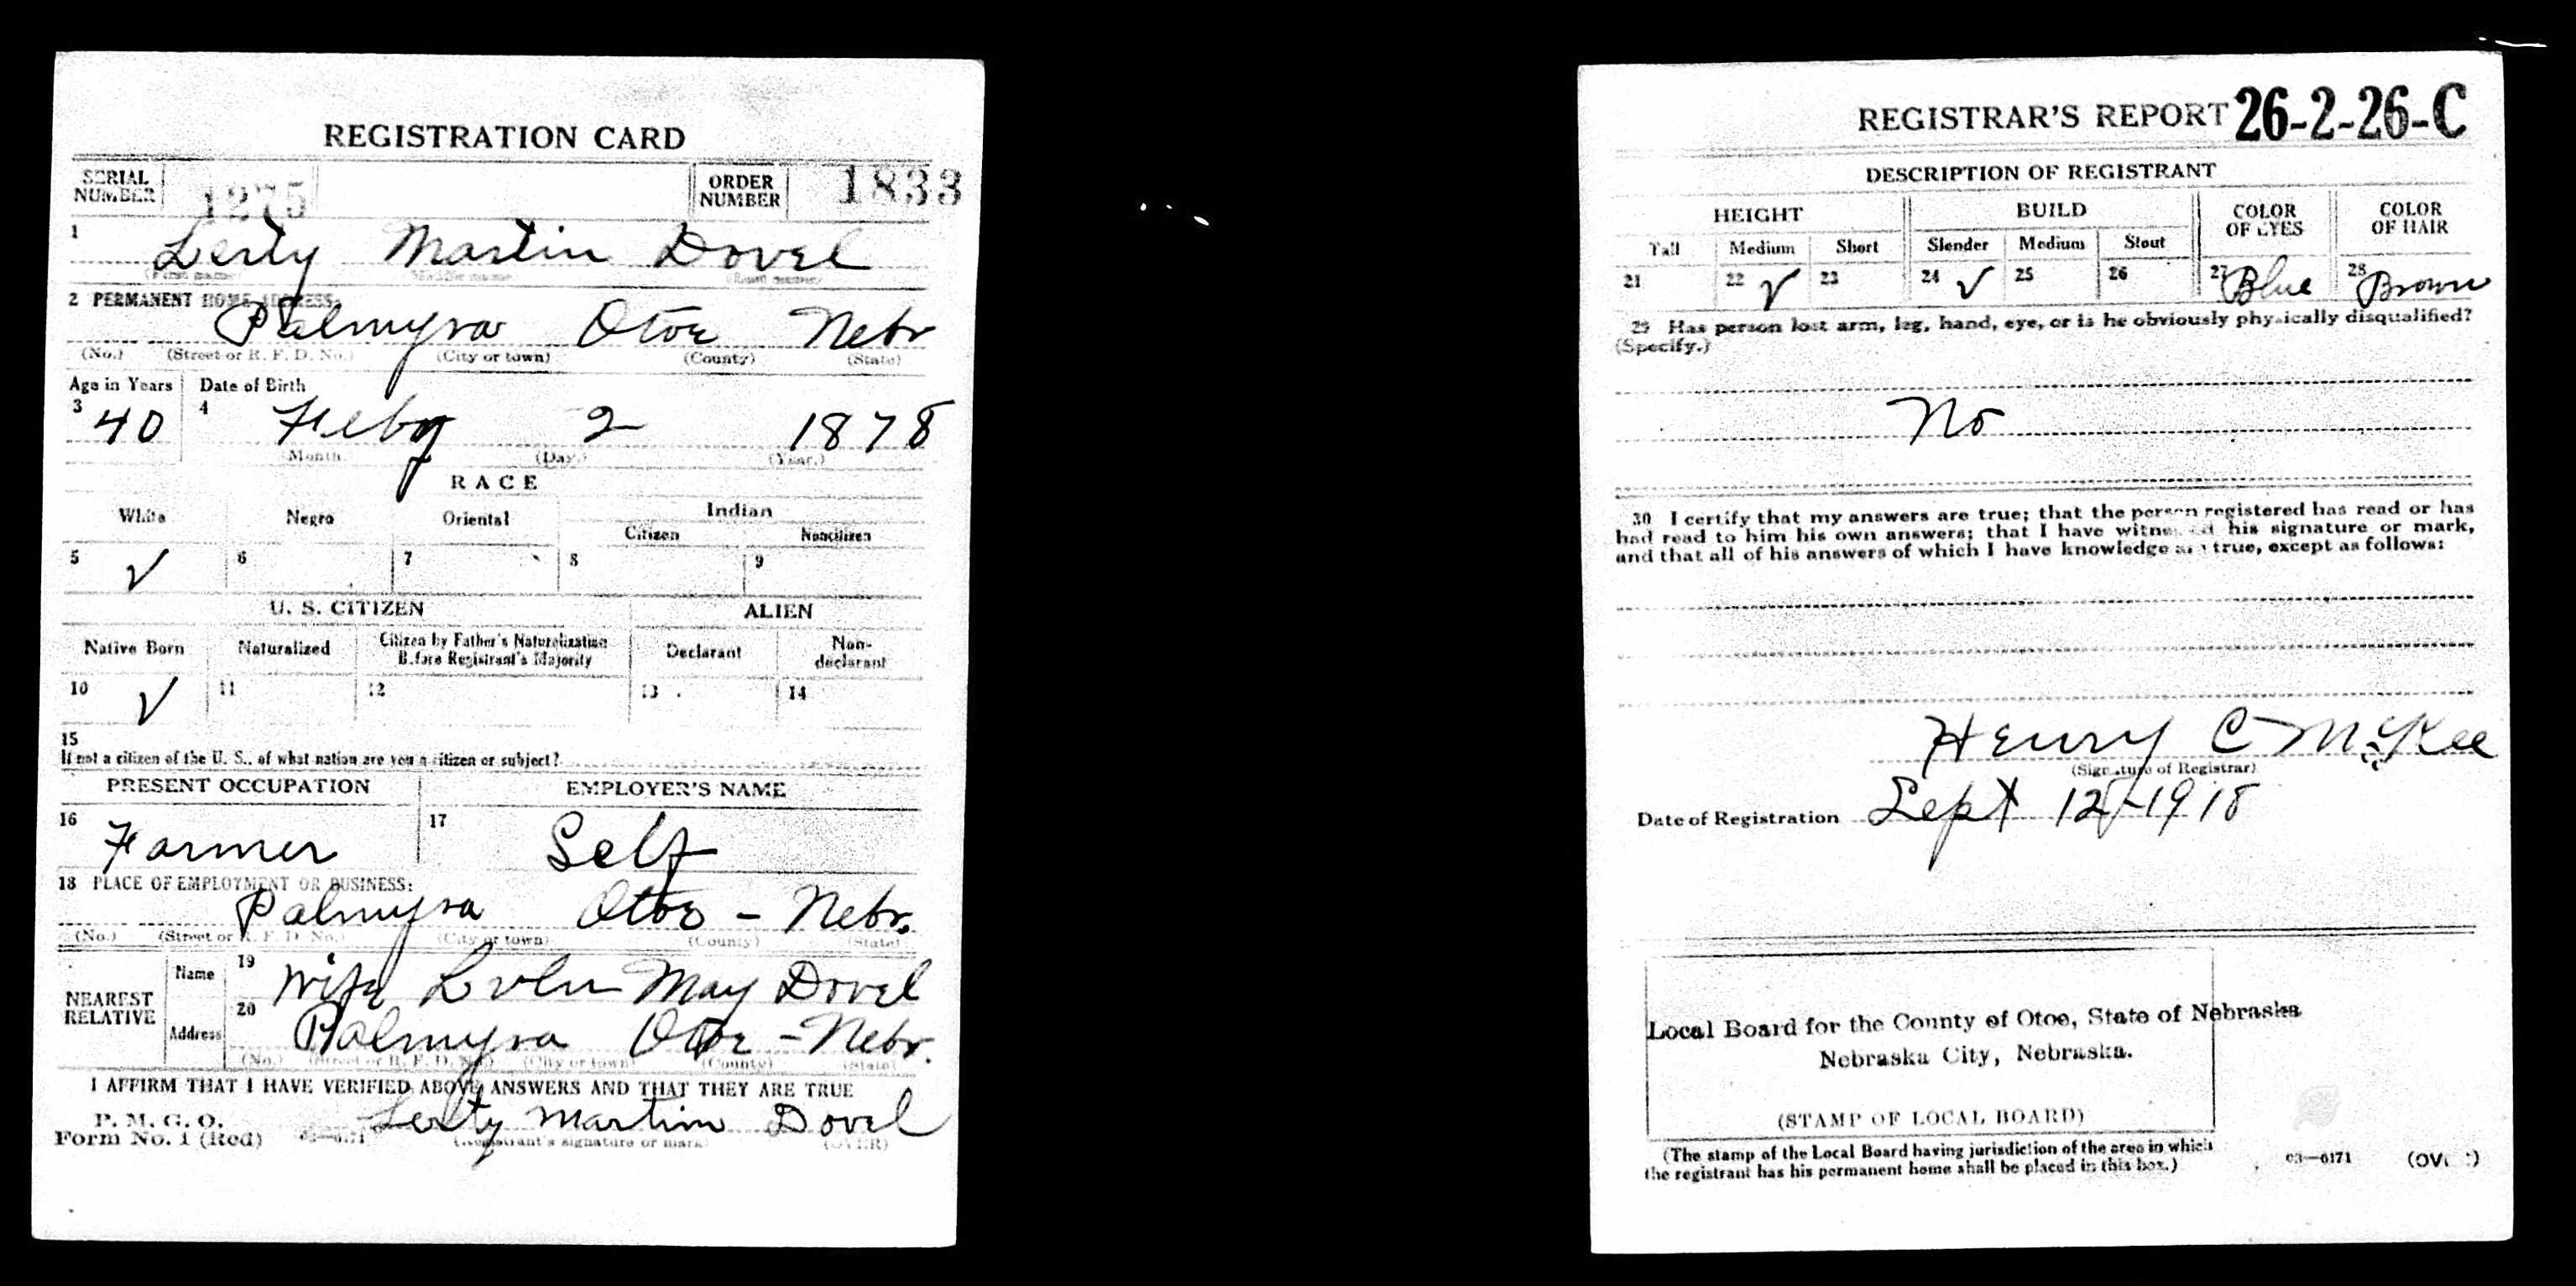 REGISTRATION CARD
SERIAL NUMBER 1275 ORDER NUMBER 1833
1 Lerty Martin Dovel
(First name) (Middle name) (Last name)
2 PERMANENT HOME ADDRESS:
Palmyra Otoe Nebr
(No.) (Street or R. F. D. No.) (City or town) (County) (State)
Age in Years Date of Birth
3 40 4 Feby 2 1878
(Month.) (Day.) (Year.)
RACE
White Negro Oriental Indian
Citizen Noncitizen
5 ✓ 6 7 8 9
U. S. CITIZEN ALIEN
Native Born Naturalized Citizen by Father's Naturalization Before Registrant's Majority Declarant Non-declarant
10 ✓ 11 12 13 14
15
If not a citizen of the U. S., of what nation are you a citizen or subject?
PRESENT OCCUPATION EMPLOYER'S NAME
16 Farmer 17 Self
18 PLACE OF EMPLOYMENT OR BUSINESS:
Palmyra Otoe - Nebr.
(No.) (Street or R. F. D. No.) (City or town) (County) (State)
NEAREST RELATIVE
Name 19 Wife May Dovel
Address 20 Palmyra Otoe - Nebr.
(No.) (Street or R. F. D. No.) (City or town) (County) (State)
I AFFIRM THAT I HAVE VERIFIED ABOVE ANSWERS AND THAT THEY ARE TRUE
P. M. G. O.
Form No. 1 (Red) Lerty Martin Dovel
(Registrant's signature or mark) (OVER)
REGISTRAR'S REPORT 26-2-26-C
DESCRIPTION OF REGISTRANT
HEIGHT BUILD COLOR OF EYES COLOR OF HAIR
Tall Medium Short Slender Medium Stout
21 22 ✓ 23 24 ✓ 25 26 27 Blue 28 Brown
29 Has person lost arm, leg, hand, eye, or is he obviously physically disqualified?
(Specify.)
No
30 I certify that my answers are true; that the person registered has read or has
had read to him his own answers; that I have witnessed his signature or mark,
and that all of his answers of which I have knowledge are true, except as follows:
Henry C McKee
(Signature of Registrar)
Date of Registration Sept 12-1918
Local Board for the County of Otoe, State of Nebraska
Nebraska City, Nebraska.
(STAMP OF LOCAL BOARD)
(The stamp of the Local Board having jurisdiction of the area in which
the registrant has his permanent home shall be placed in this box.)
03—6171 (OVER)